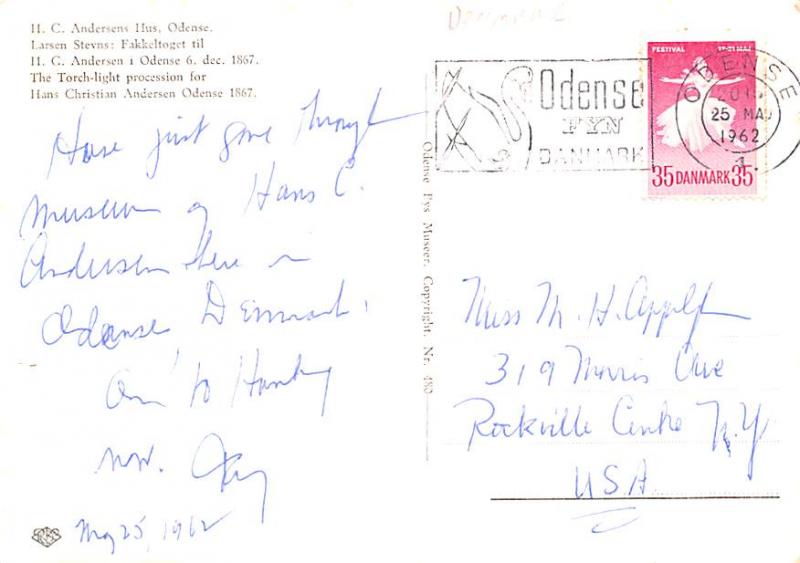 H. C. Andersens Hus, Odense.
Larsen Stevns: Fakkeltoget til
H. C. Andersen i Odense 6. dec. 1867.
The Torch-light procession for
Hans Christian Andersen Odense 1867.
Have just gone through
museum of Hans C.
Andersen here in
Odense, Denmark.
On to
now.
May 25, 1962
Odense Bys Museer. Copyright. Nr. 480
Denmark
Odense
FYN
DANMARK
FESTIVAL
MAJ
35 DANMARK 35
ODENSE
25 MAJ
1962
1.
Miss M. H.
319 Morris Ave
Rockville Centre N.Y
USA